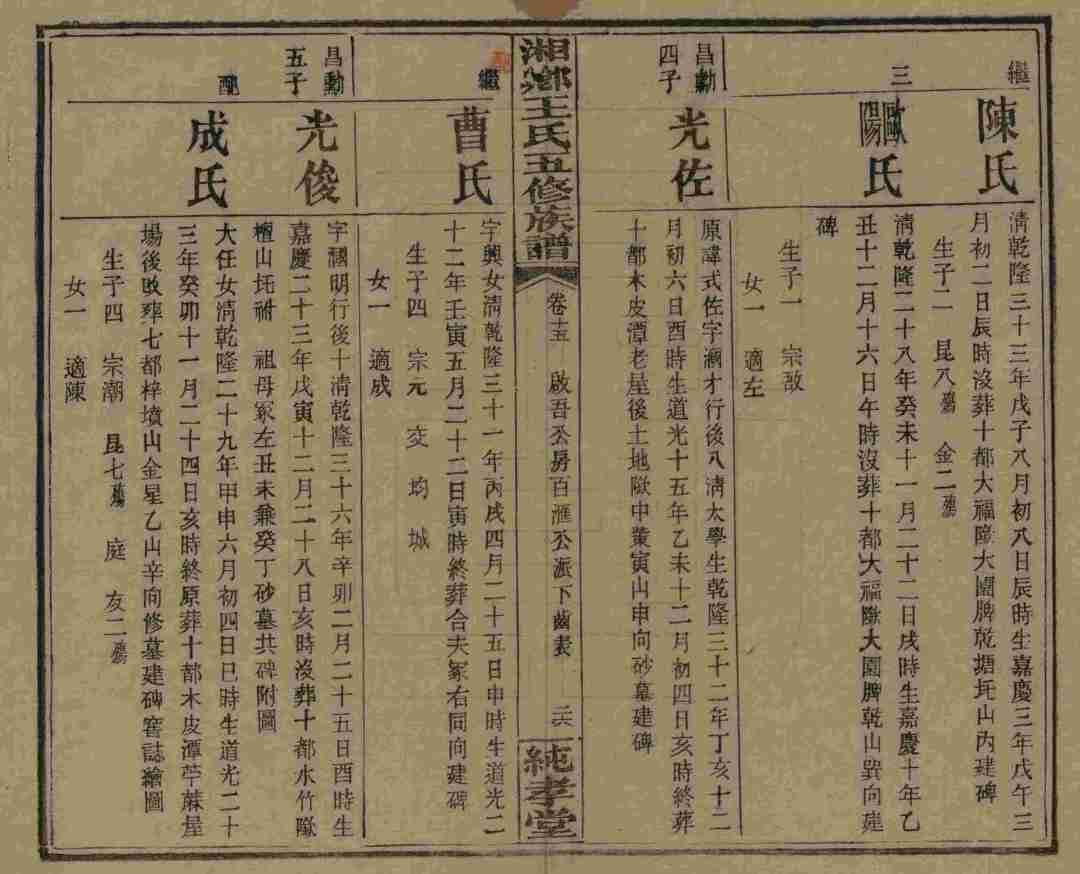 繼
陳氏
清乾隆三十三年戊子八月初八日辰時生嘉慶三年戊午三
月初二日辰時沒葬十都大福隊大園脾乾塘坵山內建碑
生子二 昆八殤 金二殤
三
歐陽氏
清乾隆二十八年癸未十一月二十二日戌時生嘉慶十年乙
丑十二月十六日午時沒葬十都大福隊大園脾乾山巽向建
碑
生子一 宗敔
女一 適左
昌勳四子
光佐
原諱式佐字瀾才行後八清太學生乾隆三十二年丁亥十二
月初六日酉時生道光十五年乙未十二月初四日亥時終葬
十都木皮潭老屋後土地隊中葉寅山申向砂墓建碑
湘鄉王氏五修族譜
卷十五 啟吾公房百滙公派下齒表 二六
純孝堂
繼
曹氏
字興女清乾隆三十一年丙戌四月二十五日申時生道光二
十二年壬寅五月二十二日寅時終葬合夫冢右同向建碑
生子四 宗元 交 均 城
女一 適成
昌勳五子
光俊
字瀾明行後十清乾隆三十六年辛卯二月二十五日酉時生
嘉慶二十三年戊寅十二月二十八日亥時沒葬十都水竹隊
檀山坵祔 祖母冢左丑未兼癸丁砂墓共碑附圖
配
成氏
大任女清乾隆二十九年甲申六月初四日巳時生道光二十
三年癸卯十一月二十四日亥時終原葬十都木皮潭苧蔴屋
場後改葬七都梓墳山金星乙山辛向修墓建碑窖誌繪圖
生子四 宗潮 昆七殤 庭 友二殤
女一 適陳